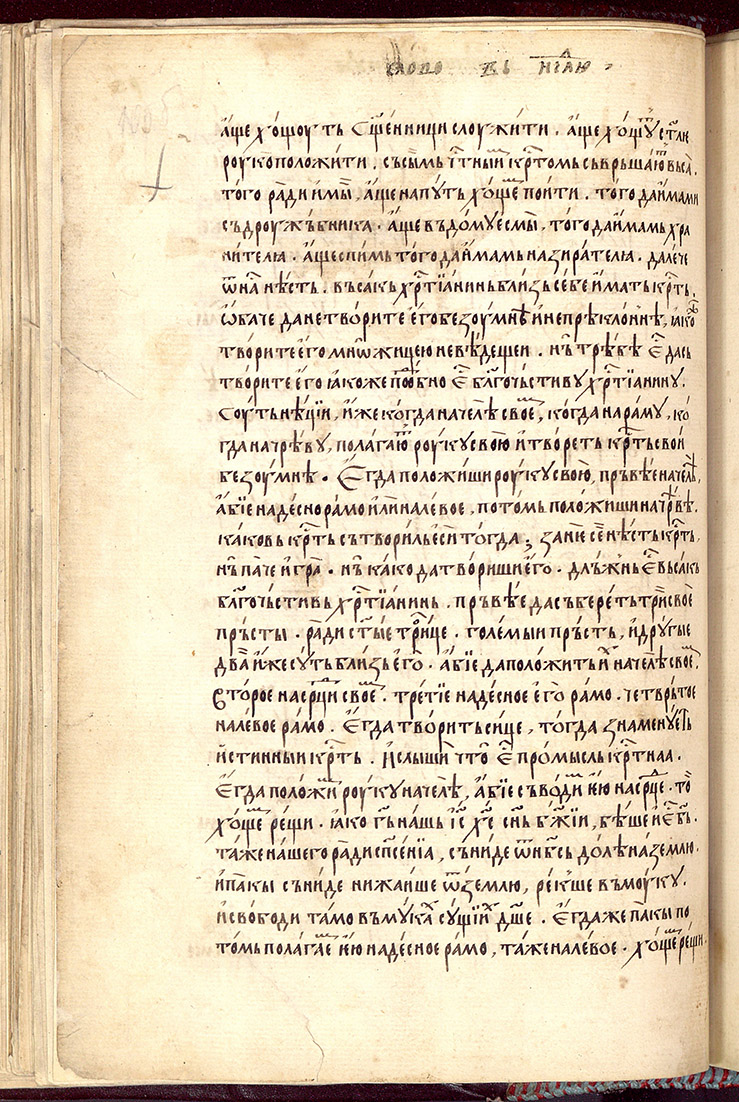 слово въ н҃лю
а҆ще хо́щоуть сщ҃е́нници слоужи́ти . а҆ще хо́щоу ст҃лїе
роукоположи́ти . съсѣ́мь чт҃ныи крⷭ҇томь съвръша́ютⷭ вьса̀ .
того̀ ра́ди и҆ мы̀ , а҆ще на пу́ть хо́щешⷨ пои́ти . того̀ да и҆́мами
съдроу́жьбника . а҆ще въ до́му есмы̀ . того̀ да и҆́мамь хра
ни́телꙗ . а҆ще спи́мь того̀ да и҆́мамь назира́телꙗ . дале́че
ѿ на́с нѣ́сть . въса́къ хрⷭ҇тїа́нинь бли́зь се́бе и҆́мать крⷭ҇ть ,
ѡ҆ба́че да не тво́рите е҆го̀ безоу́мнѣ и҆ непрѣкло́ннѣ , ꙗ҆ко
тво́рите е҆го̀ мнѡ́жицею невѣ́дещеи . нь̀ трѣ́бѣ еⷭ҇ да съ
тво́рите е҆го̀ ꙗ҆ко́же подо́бно еⷭ҇ бл҃гочьсти́ву хрⷭ҇тїа́нину .
Соу́ть нѣ́цїи , и҆́же ко́гда на че́лѣ свое́мь , ко́гда на ра́му , ко́
гда на чрѣ́ву , пола́гаютⷮ роу́ку свою̀ и҆ тво́реть крⷭ҇ть сво́й
безоу́мнѣ . Е҆гда̀ положи́ши роу́ку свою̀ , пръвѣ́е на че́лѣ ,
а҆бїе на десно ра́мо и҆лѝ на лѣ́вое , пото́мь поло́жиши на чрѣ́вѣ .
како́вь крⷭ҇ть сътвори́ль е҆сѝ тогда̀ ; занѐ сѐ нѣ́сть крⷭ҇ть ,
нь̀ па́че и҆гра̀ . нь̀ ка́ко да твори́ши е҆го̀ . длъ́жнь еⷭ҇ вьса́къ
бл҃гочьсти́вь хрⷭ҇тїа́нинь . пръвѣ́е да събере́ть трѝ своѐ
пръ́сты . ра́ди ст҃ы́е трⷪ҇и́це . голе́мыи пръ́сть , и҆ дру́гые
два̀ и҆́же су́ть бли́зь е҆го̀ . а҆бїе да поло́жить ихⷯ на че́лѣ свое́мь ,
Второ́е на срⷣци свое́мь . тре́тїе на десно́е е҆го̀ ра́мо . четврь́тое
на лѣ́вое ра́мо . Е҆гда̀ тво́рить си́це , тогда̀ зна́менуеть
и҆́стинныи крⷭ҇ть . И҆ слы́ши что̀ еⷭ҇ про́мысль крⷭ҇тнаа .
Е҆гда̀ поло́жишⷨ роу́ку на че́лѣ , а҆бїе съво́дишⷨ ю҆ на срⷣце . то̀
хо́щешⷨ рещѝ . ꙗ҆ко г҃ь на́шь і҆с҃ х҃с сн҃ь бж҃їи , бѣ́ше и҆ еⷭ҇ бг҃ь .
та́же на́шего ра́ди спⷭ҇е́нїа , съни́де ѿ нб҃съ до́лѣ на зе́млю .
и҆ па́кы съни́де нижа́ише ѿ зе́млю , ре́кше въ моу́ку .
и҆ свободѝ та́мо въ му́кахⷯ су́щїихⷯ дш҃е . Е҆гда́ же па́кы по
то́мь пола́гаешⷨ ю҆ на десно́е ра́мо , та́же на лѣ́вое . хо́щешⷨ рещѝ .